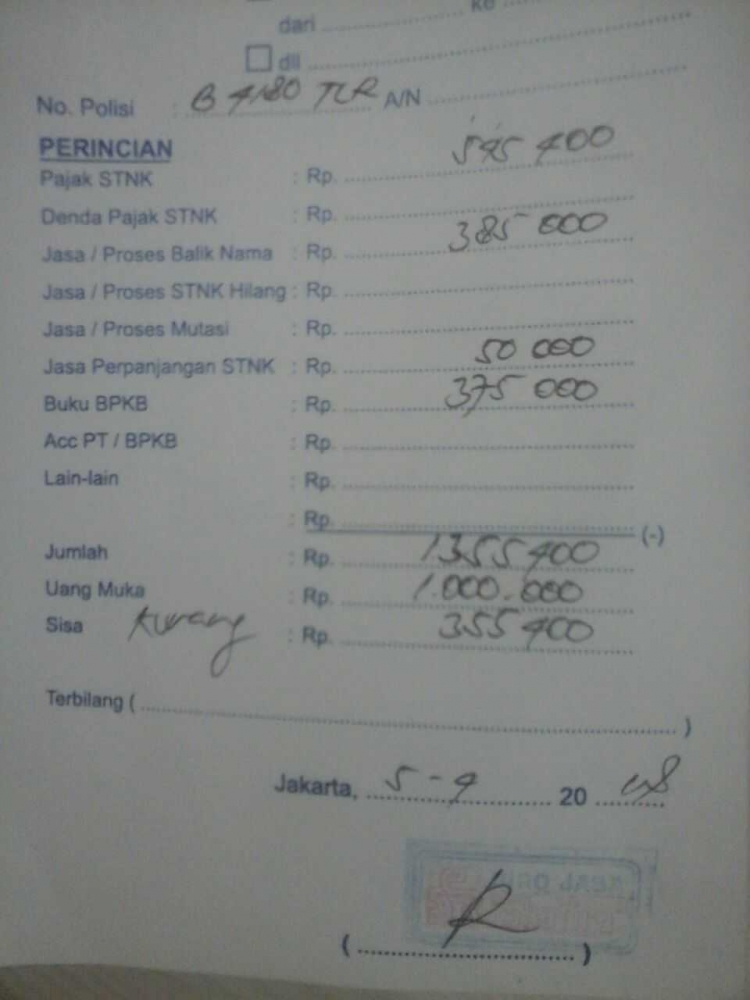 dari ke
dll
No. Polisi : B A/N
PERINCIAN
Pajak STNK : Rp. 545 400
Denda Pajak STNK : Rp.
Jasa / Proses Balik Nama : Rp. 385 000
Jasa / Proses STNK Hilang : Rp.
Jasa / Proses Mutasi : Rp.
Jasa Perpanjangan STNK : Rp. 50 000
Buku BPKB : Rp. 375 000
Acc PT / BPKB : Rp.
Lain-lain : Rp.
: Rp. (-)
Jumlah : Rp. 1355 400
Uang Muka : Rp. 1.000.000
Sisa Kurang : Rp. 355 400
Terbilang ( )
Jakarta, 5 - 9 20
( )